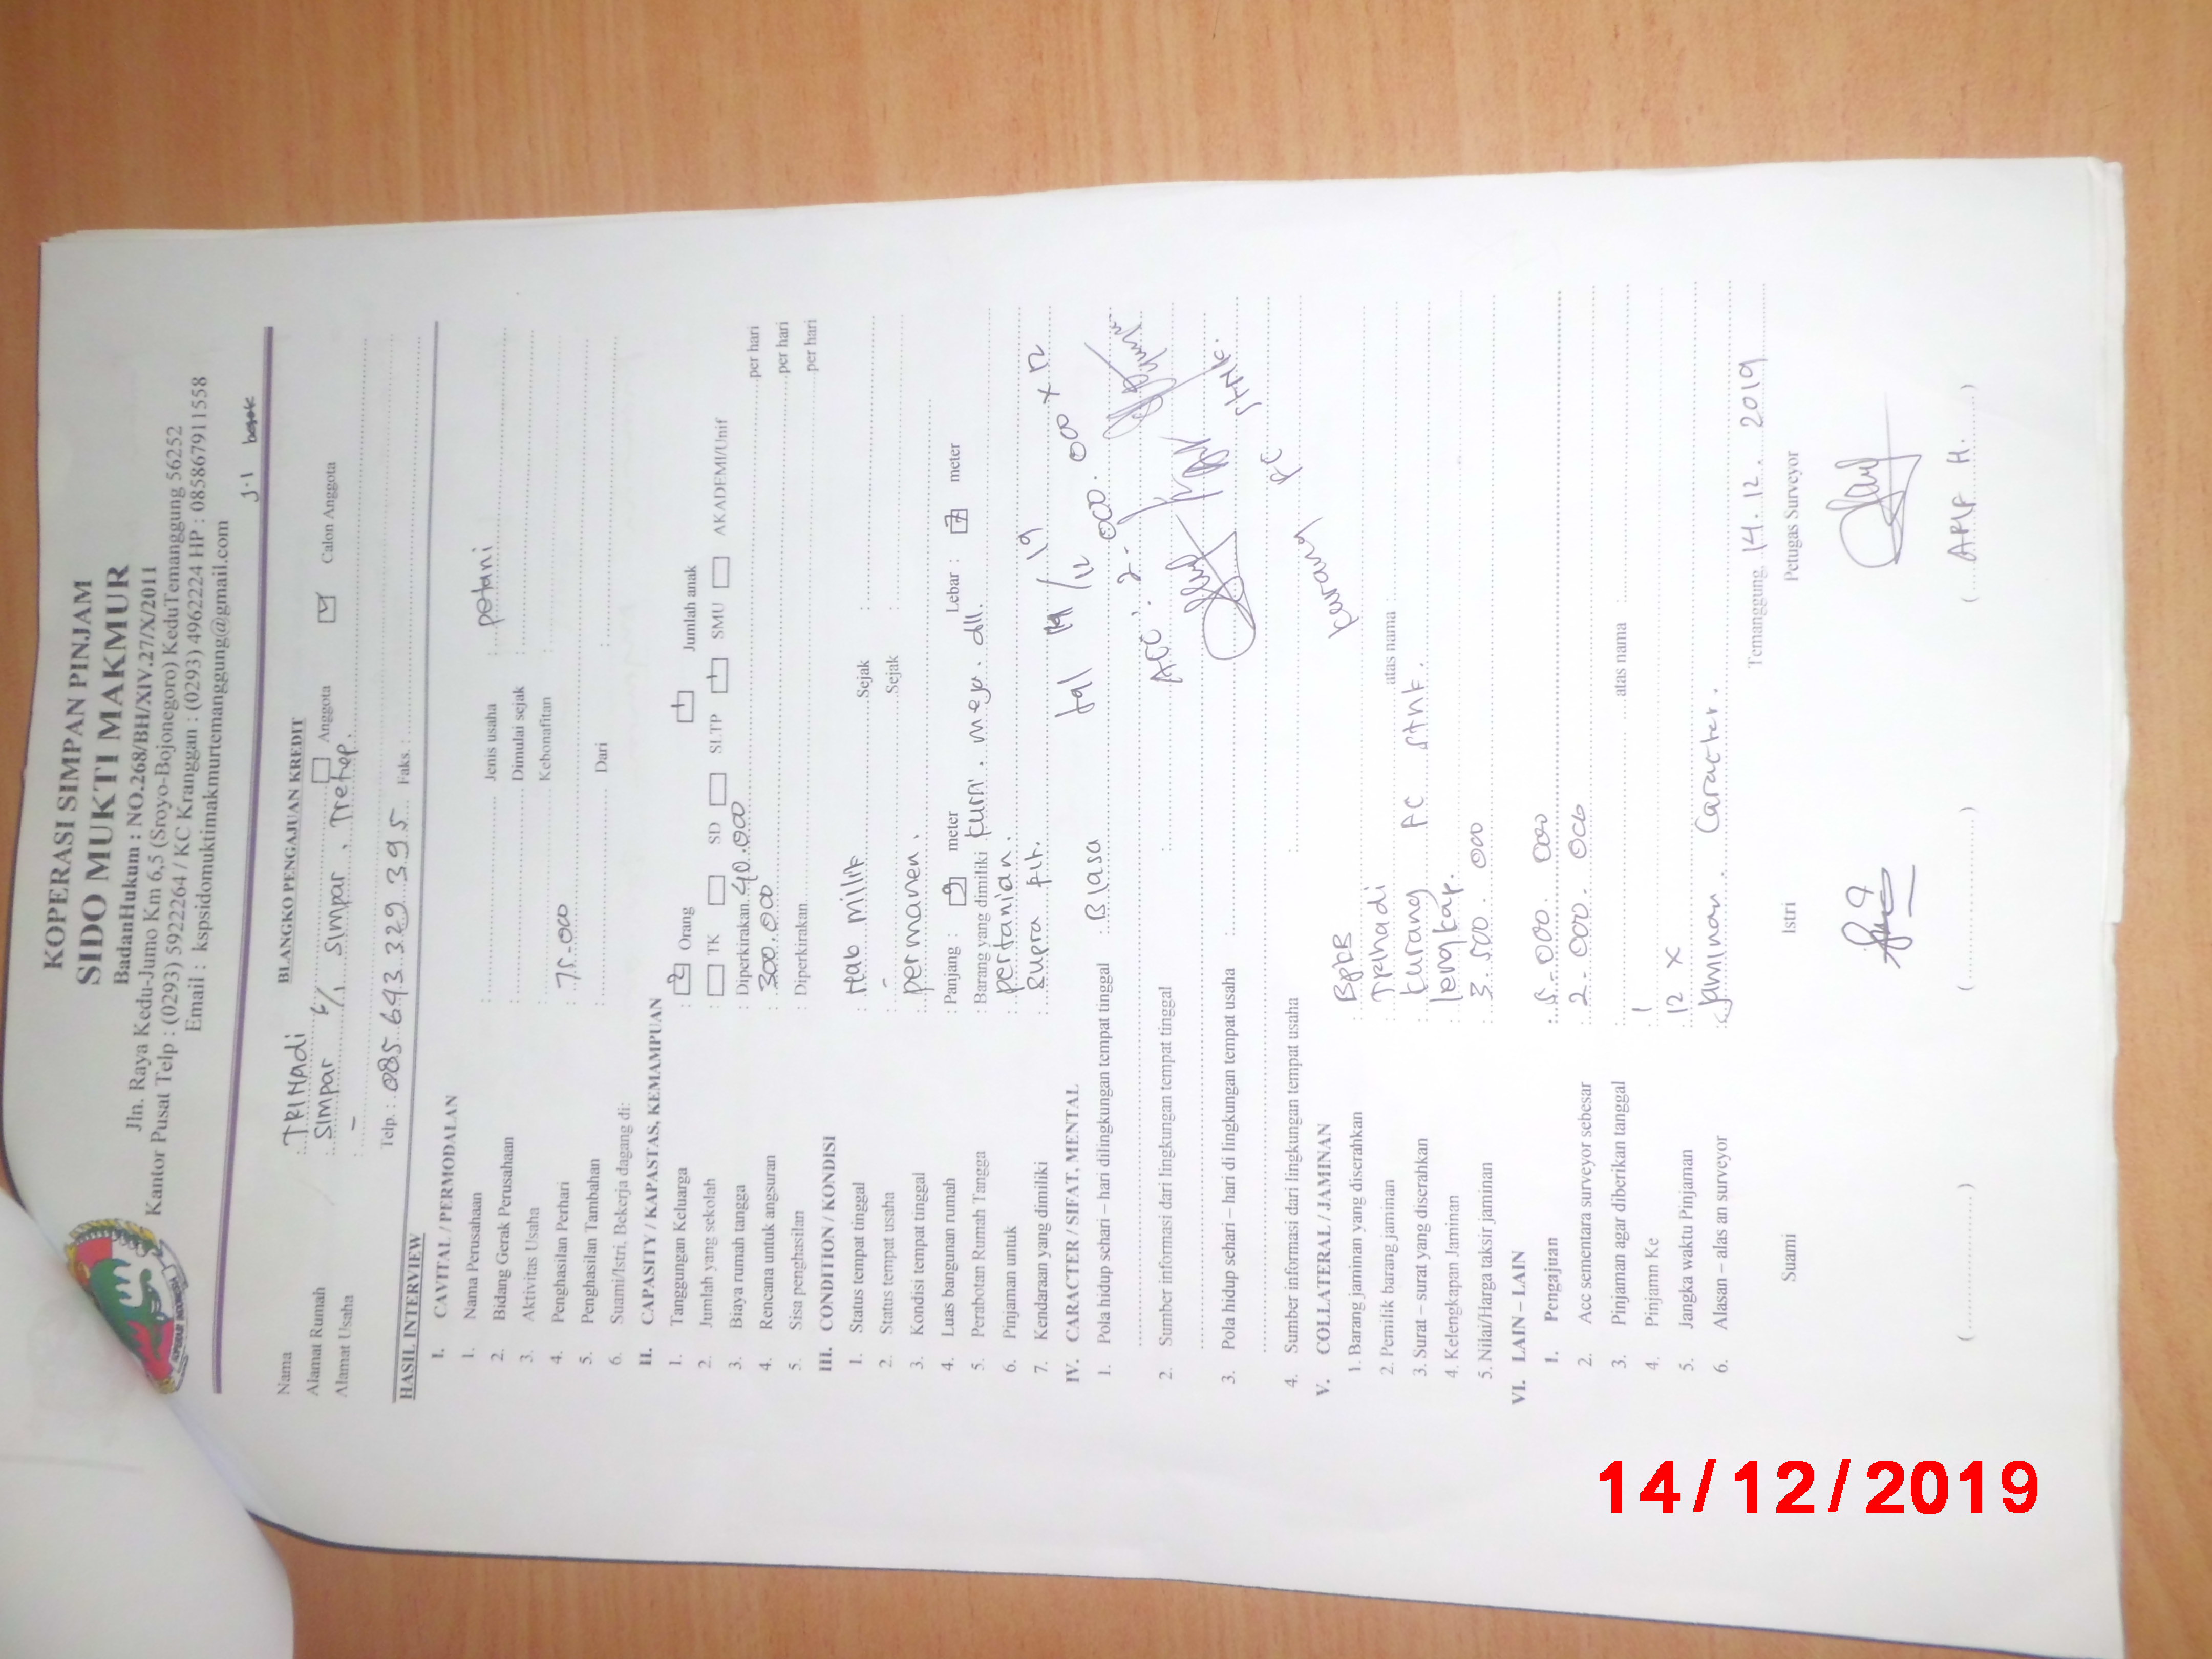 KOPERASI SIMPAN PINJAM
SIDO MUKTI MAKMUR
BadanHukum : NO.268/BH/XIV.27/X/2011
Jln. Raya Kedu-Jumo Km 6,5 (Sroyo-Bojonegoro) KeduTemanggung 56252
Kantor Pusat Telp : (0293) 5922264 / KC Kranggan : (0293) 4962224 HP : 085867911558
Email : kspsidomuktimakmurtemanggung@gmail.com
J-1 besok
BLANGKO PENGAJUAN KREDIT
Nama : TRIHadi Anggota Calon Anggota
Alamat Rumah : Simpar Simpar, Tretep.
Alamat Usaha : -
Telp. : 085.643.329.395 Faks. :
HASIL INTERVIEW
I. CAVITAL / PERMODALAN
1. Nama Perusahaan : Jenis usaha : petani
2. Bidang Gerak Perusahaan : Dimulai sejak :
3. Aktivitas Usaha : Kebonafitan :
4. Penghasilan Perhari : 75.000
5. Penghasilan Tambahan : Dari :
6. Suami/Istri, Bekerja dagang di:
II. CAPASITY / KAPASTAS, KEMAMPUAN
1. Tanggungan Keluarga : Orang Jumlah anak
2. Jumlah yang sekolah : TK SD SLTP SMU AKADEMI/Unif
3. Biaya rumah tangga : Diperkirakan 40.000 per hari
4. Rencana untuk angsuran : 300.000 per hari
5. Sisa penghasilan : Diperkirakan per hari
III. CONDITION / KONDISI
1. Status tempat tinggal : Hab milik Sejak :
2. Status tempat usaha : - Sejak :
3. Kondisi tempat tinggal : permanen.
4. Luas bangunan rumah : Panjang : meter Lebar : 7 meter
5. Perabotan Rumah Tangga : Barang yang dimiliki kursi. meja. dll.
6. Pinjaman untuk : pertanian.
7. Kendaraan yang dimiliki : Supra fit.
tgl /12 19
ACC : 2.000.000 x 12
IV. CARACTER / SIFAT, MENTAL
1. Pola hidup sehari – hari diingkungan tempat tinggal : Biasa
2. Sumber informasi dari lingkungan tempat tinggal :
3. Pola hidup sehari – hari di lingkungan tempat usaha :
4. Sumber informasi dari lingkungan tempat usaha
kurang FC STNK.
V. COLLATERAL / JAMINAN
1. Barang jaminan yang diserahkan : BpkB
2. Pemilik barang jaminan : TRIhadi atas nama
3. Surat – surat yang diserahkan : kurang F.C Stnk.
4. Kelengkapan Jaminan : lengkap.
5. Nilai/Harga taksir jaminan : 3.500.000
VI. LAIN – LAIN
1. Pengajuan : 5.000.000
2. Acc sementara surveyor sebesar : 2.000.000
3. Pinjaman agar diberikan tanggal : atas nama :
4. Pinjamn Ke : 1
5. Jangka waktu Pinjaman : 12 x
6. Alasan – alas an surveyor : Jaminan. Caracter.
Temanggung, 14.12.2019
Suami Istri Petugas Surveyor
(..............) (..............) (APIP H.)
14/12/2019